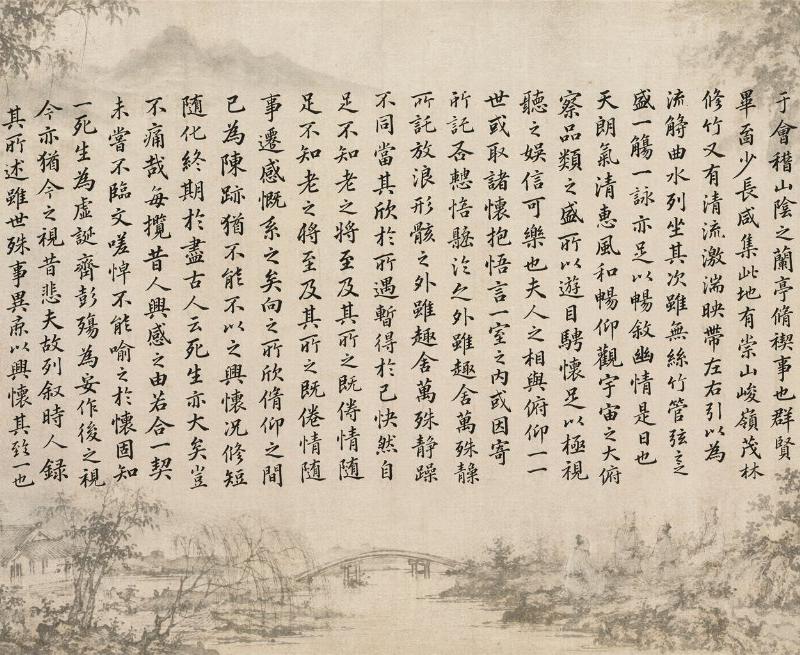 于會稽山陰之蘭亭脩稧事也群賢
畢少長咸集此地有崇山峻嶺茂林
修竹又有清流激湍映帶左右引以為
流觴曲水列坐其次雖無絲竹管弦之
盛一觴一詠亦足以暢敘幽情是日也
天朗氣清惠風和暢仰觀宇宙之大俯
察品類之盛所以遊目騁懷足以極視
聽之娛信可樂也夫人之相與俯仰一一
世或取諸懷抱悟言一室之內或因寄
所託否悟懸之外雖趣舍萬殊
所託放浪形骸之外雖趣舍萬殊静躁
不同當其欣於所遇暫得於己快然自
足不知老之將至及其所之既倦情隨
足不知老之將至及其所之既倦情隨
事遷感慨系之矣向之所欣脩仰之間
已為陳跡猶不能不以之興懷况修短
隨化終期於盡古人云死生亦大矣豈
不痛哉每攬昔人興感之由若合一契
未嘗不臨文嗟悼不能喻之於懷固知
一死生為虛誕齊彭殤為妄作後之視
今亦猶今之視昔悲夫故列叙時人錄
其所述雖世殊事異以興懷其一也